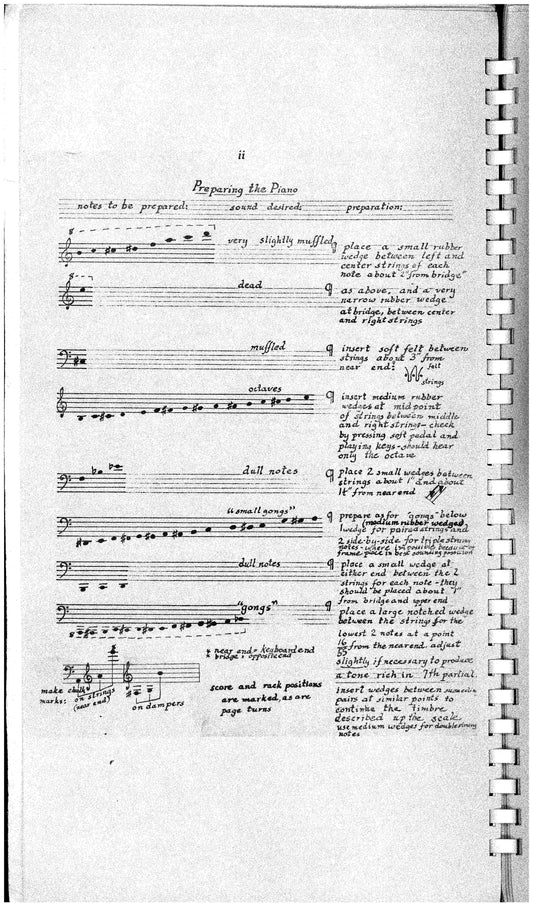 ii
Preparing the Piano
notes to be prepared: sound desired: preparation:
8
very slightly muffled ¶ place a small rubber
wedge between left and
center strings of each
note about 2" from bridge*
8
dead ¶ as above, and a very
narrow rubber wedge
at bridge, between center
and right strings
muffled ¶ insert soft felt between
strings about 3" from
near end: felt
strings
octaves ¶ insert medium rubber
wedges at midpoint
of strings between middle
and right strings – check
by pressing soft pedal and
playing keys – should hear
only the octave
dull notes ¶ place 2 small wedges between
strings about 1" and about
1½" from near end
"small gongs" ¶ prepare as for "gongs" below
(medium rubber wedges)
1 wedge for paired strings and
2 side-by-side for triple strung
notes – where impossible because of
frame, place in best sounding position
dull notes ¶ place a small wedge at
either end between the 2
strings for each note – they
should be placed about 1"
from bridge and upper end
"gongs" ¶ place a large notched wedge
between the strings for the
8
lowest 2 notes at a point
16/55 from the near end. adjust
slightly if necessary to produce
a tone rich in 7th partial.
insert wedges between
pairs at similar points to
continue the timbre
described up the scale
use medium wedges for double strung
notes
* near end = keyboard end
* bridge = opposite end
make chalk
marks: on strings
(near end)
on dampers
score and rack positions
are marked, as are
page turns